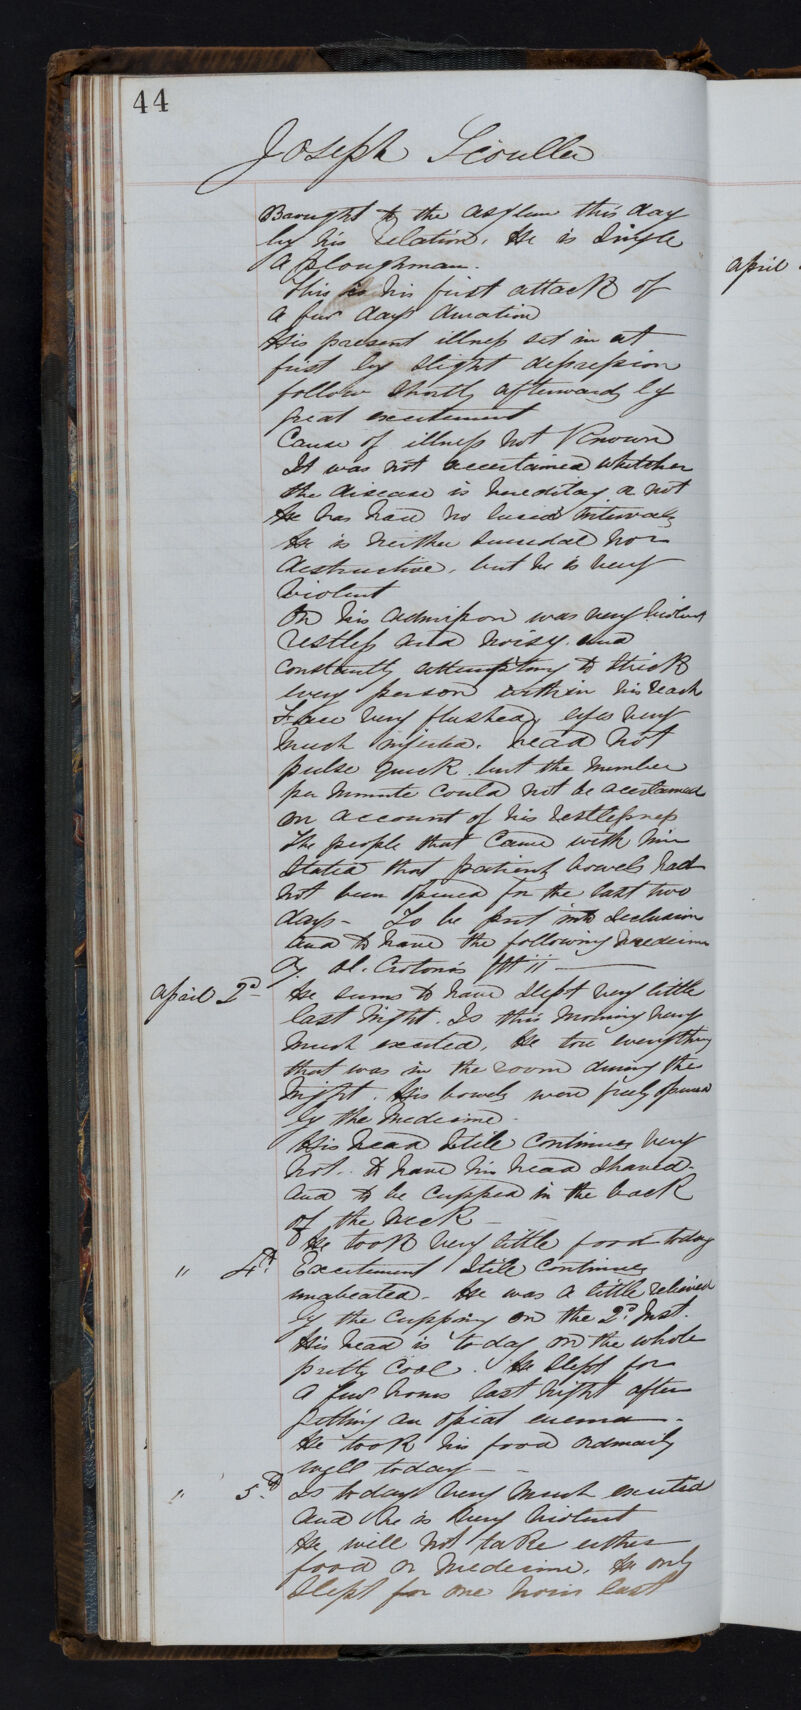 44
Joseph Scouller
Brought to the asylum this day
by his relations. He is single
a ploughman.
This is his first attack of
a few days duration
His present illness set in at
first by slight depression
follow shortly afterwards by
great excitement
Cause of illness not Known
It was not accertained whether
the disease is hereditary or not
He has had no lucid intervals
He is neither suicidal nor
destructive, but he is very
violent
On his admission was very violent
restless and noisy and
constantly attempting to strick
every person within his reach
Face very flushed, eyes very
much injected. head hot
pulse quick. but the number
per minute could not be acertained
on account of his restlessness
The people that came with him
stated that patients bowels had
not been opened for the last two
days - To be put into seclusion
and to have the following medecine
Ol. Crotonis ii
April 2d He seems to have slept very little
last night. Is this morning very
much excited. He tore everything
that was in the room during the
night. His bowels were freely opened
by the medecine.
His head stile continues very
hot. To have his head shaved.
and to be cupped in the back
of the neck
He took very little food today
" 4th Excitement stile continues
unabeated. He was a little relieved
by the cupping on the 2d Inst.
His head is to day on the whole
pretty cool. He slept for
a few hours last night after
getting an opiat enema.
He took his food ordinarily
well today
" 5th Is to day very much excited
and he is very violent
He will not take either
food or medecine. He only
slept for one hour last
April